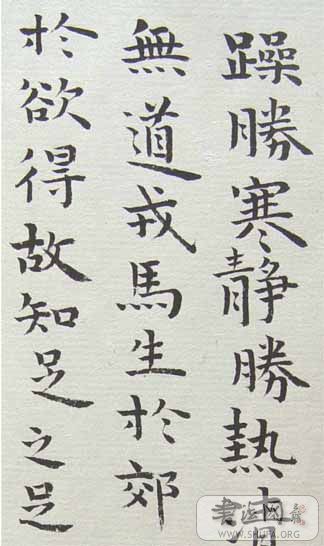 躁勝寒靜勝熱清
無道戎馬生於郊
於欲得故知足之足
WWW.SHUFA.ORG